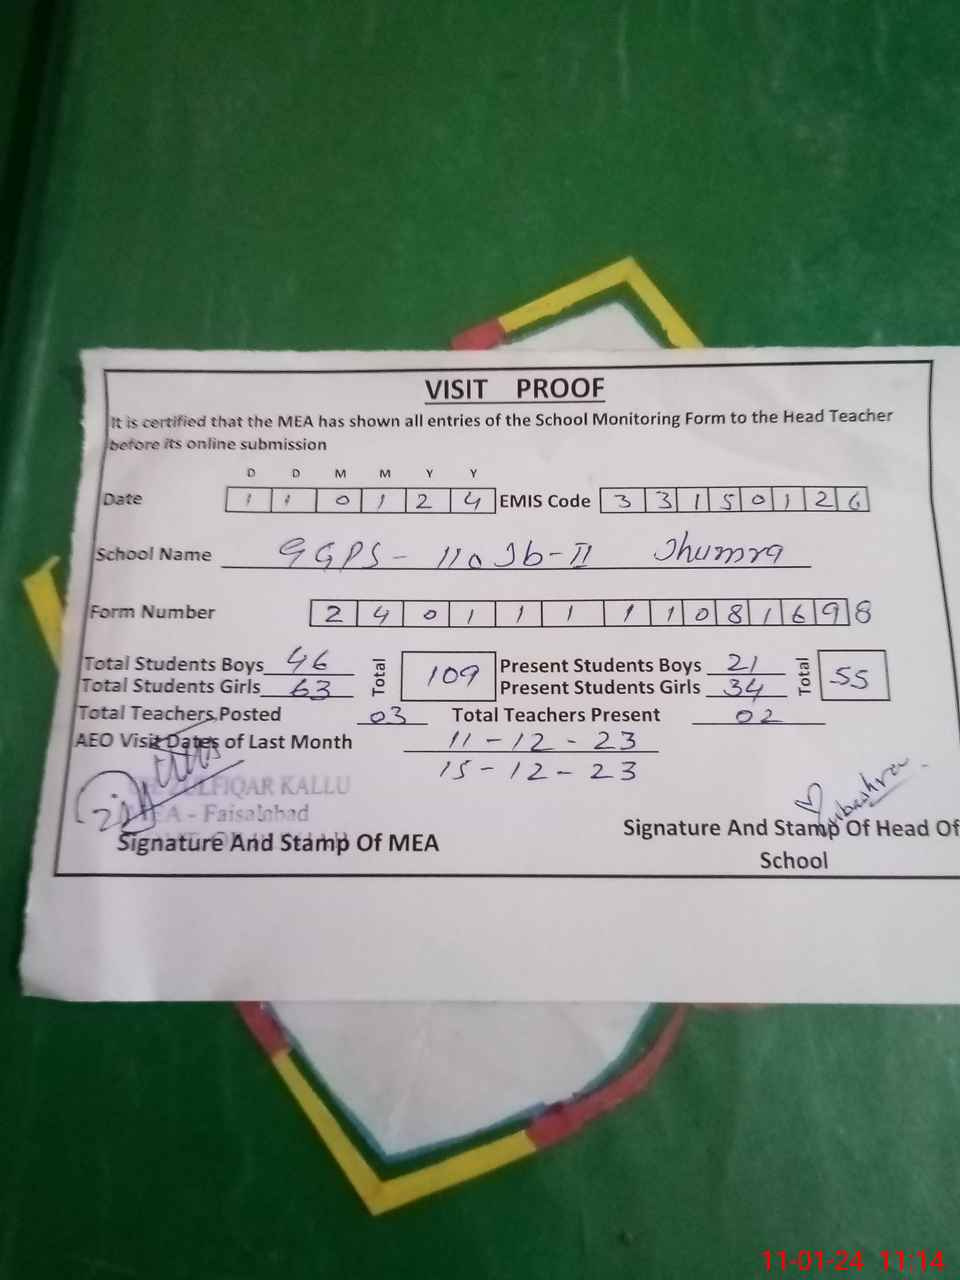 VISIT PROOF
It is certified that the MEA has shown all entries of the School Monitoring Form to the Head Teacher
before its online submission
D D M M Y Y
Date 1 1 0 1 2 4 EMIS Code 3 3 1 5 0 1 2 6
School Name GGPS - 110 Jb-II Jhumra
Form Number 2 4 0 1 1 1 1 1 0 8 1 6 9 8
Total Students Boys 46 Total 109 Present Students Boys 21 Total 55
Total Students Girls 63 Present Students Girls 34
Total Teachers Posted 03 Total Teachers Present 02
AEO Visit Dates of Last Month 11-12-23
15-12-23
ZULFIQAR KALLU
MEA - Faisalabad
Signature And Stamp Of MEA
Signature And Stamp Of Head Of
School
11-01-24 11:14